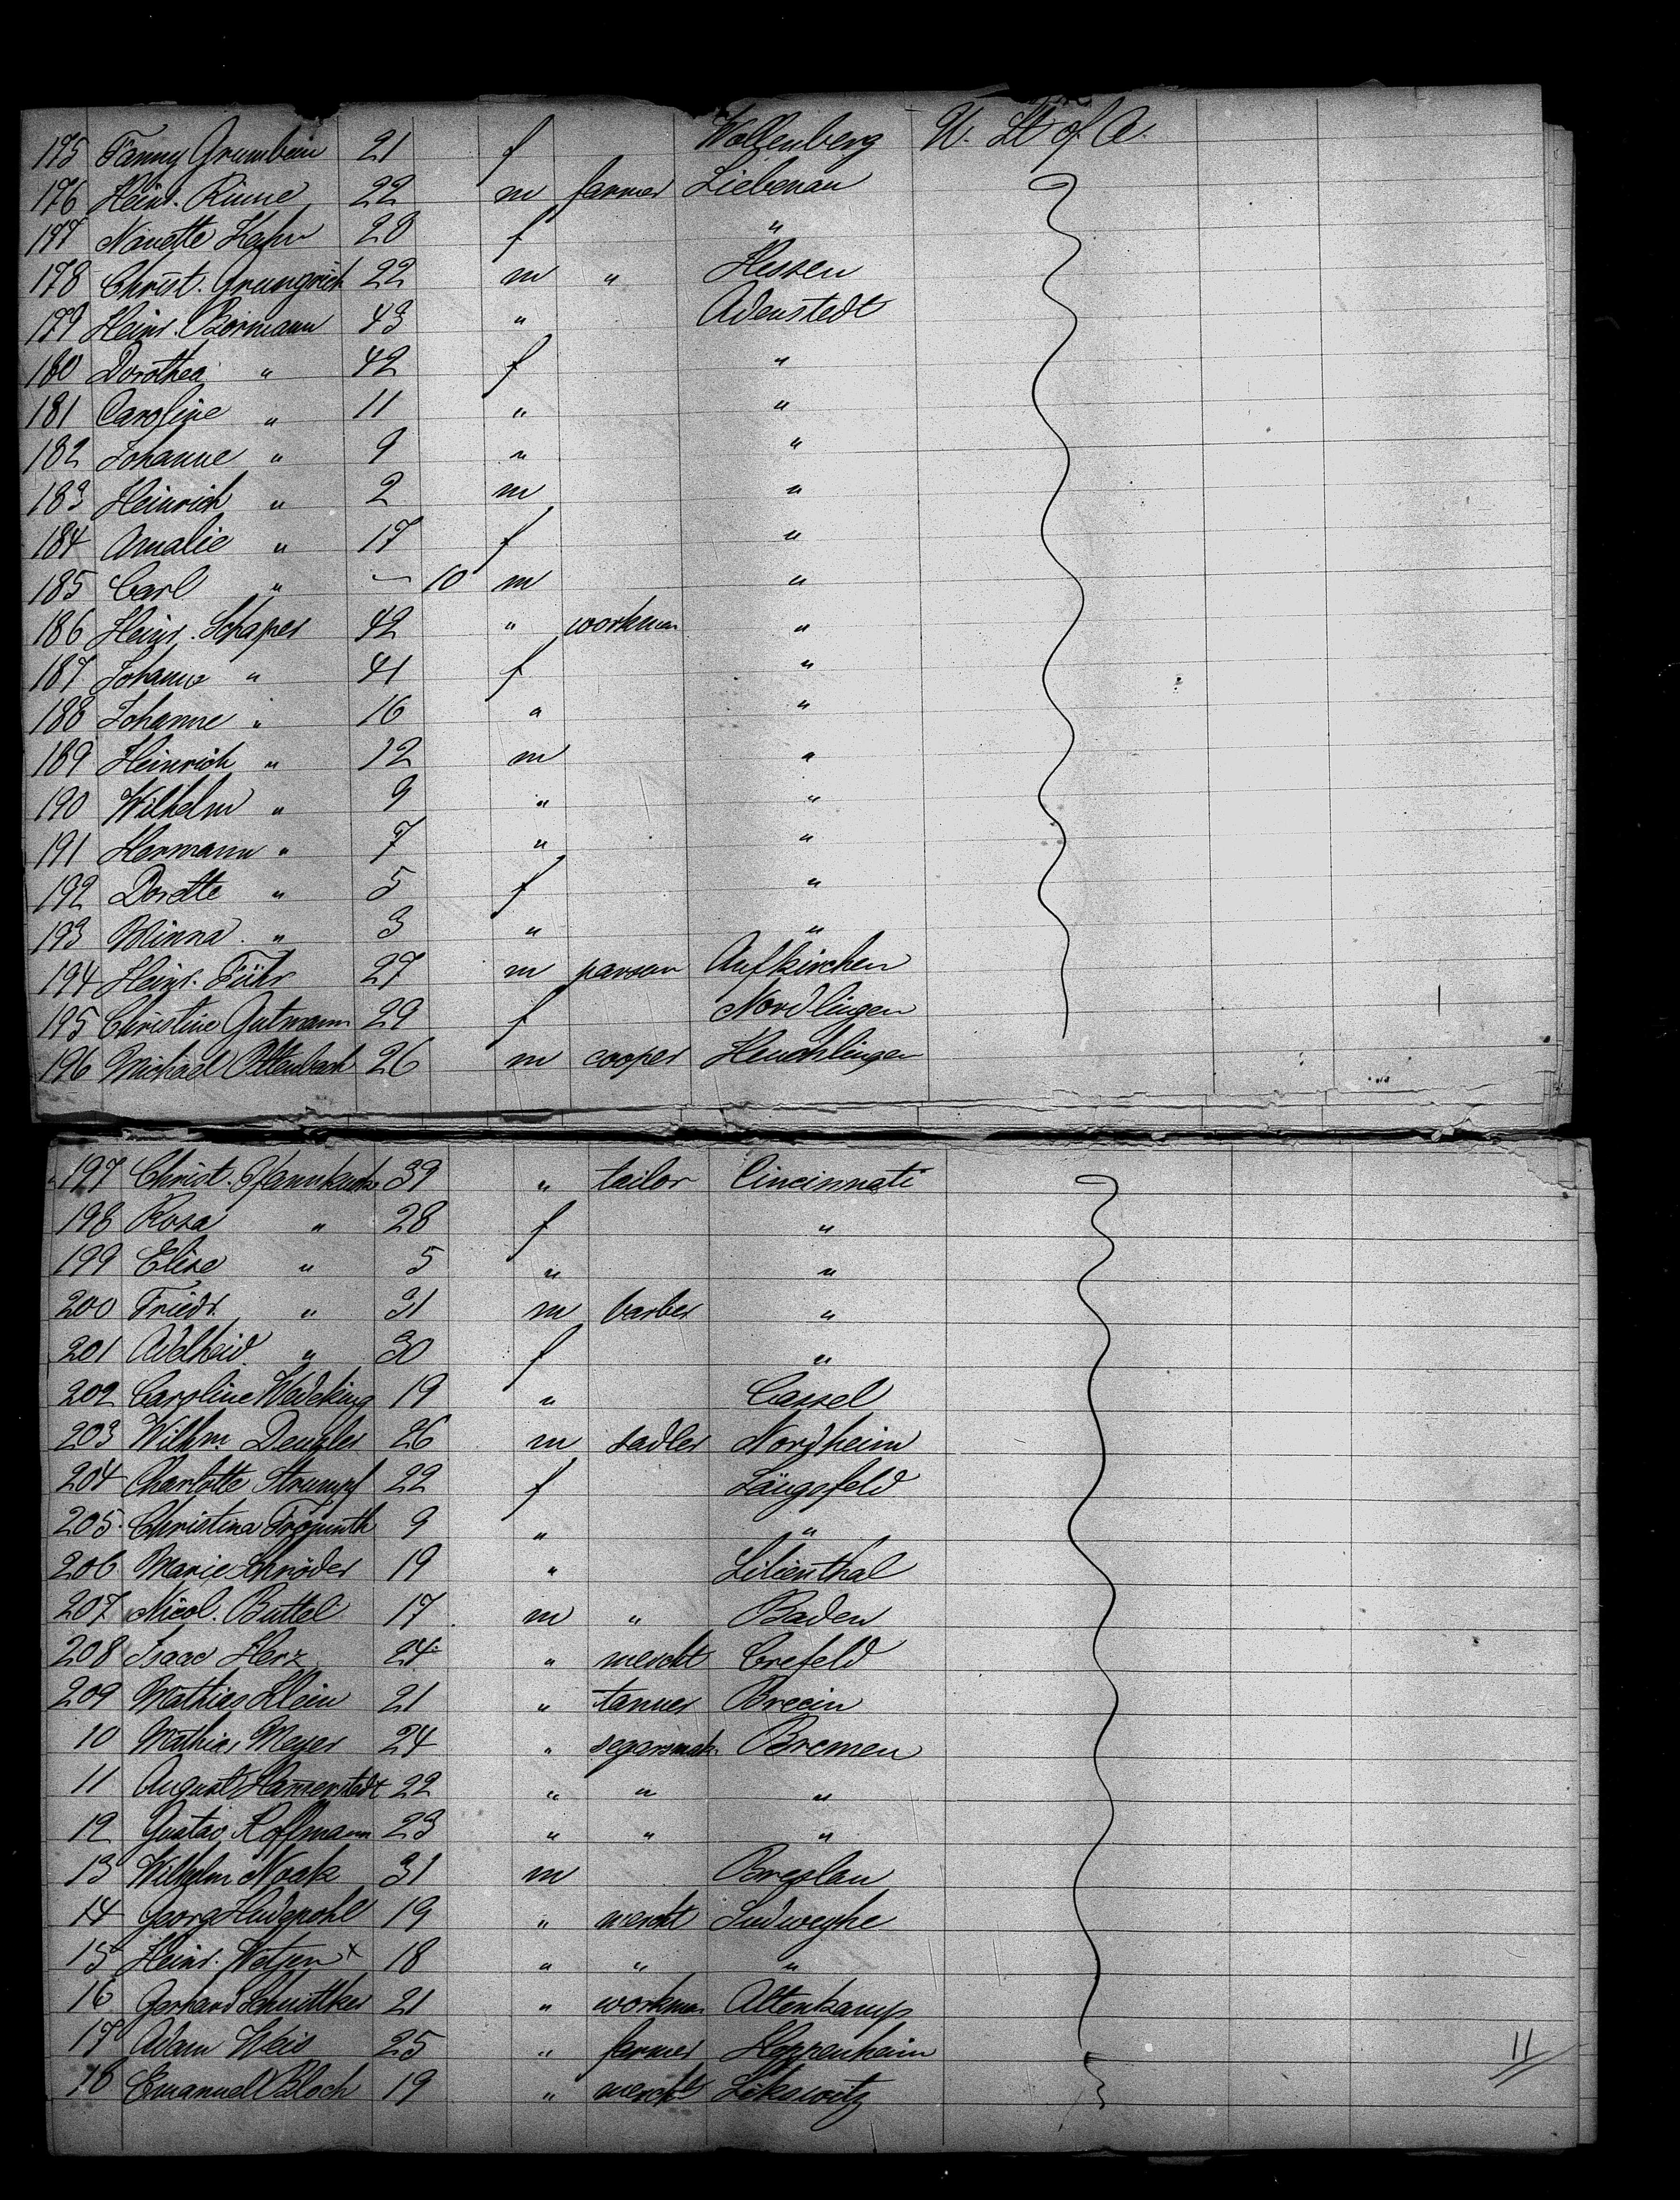 175 Fanny Grumbein 21 f Wollenberg U. St. of A.
176 Heinr. Rinne 22 m farmer Liebenau
177 Nanette Kahn 20 f "
178 Christ. 22 m " Hessen
179 Heinr. Bormann 43 " Adenstedt
180 Dorothea " 42 f "
181 Caroline " 11 " "
182 Johanne " 9 " "
183 Heinrich " 2 m "
184 Amalie " 17 f "
185 Carl " — 10 m "
186 Heinr. Schaper 42 " workman "
187 Johanne " 41 f "
188 Johanne " 16 " "
189 Heinrich " 12 m "
190 Wilhelm " 9 " "
191 Hermann " 7 " "
192 Dorette " 5 f "
193 Minna " 3 " "
194 Heinr. Führ 27 m parson Aufkirchen
195 Christine Gutmann 29 f Nordlingen
196 Michael 26 m cooper Heuchlingen
197 Christ. Pfannkuche 39 " tailor Cincinnati
198 Rosa " 28 f "
199 Elise " 5 " "
200 Friedr. " 31 m barber "
201 Adelheid " 30 f "
202 Caroline Wedeking 19 " Cassel
203 Wilhm Dengler 26 m sadler Nordheim
204 Charlotte Strumpf 22 f Längsfeld
205 Christina 9 " "
206 Marie Schröder 19 " Lilienthal
207 Nicol. Buttel 17 m " Baden
208 Isaac Herz 24 " mercht Crefeld
209 Mathias Klein 21 " tanner
10 Mathias Meyer 24 " segarmak. Bremen
11 August 22 " " "
12 Gustav Hoffmann 23 " " "
13 Wilhelm Noak 31 m Breslau
14 Georg Hudepohl 19 " mercht Sudweyhe
15 Heinr. Wetjen x 18 " " "
16 Gerhard 21 " workman Altenkamp
17 Adam Weis 25 " farmer Heppenheim 11
18 Emanuel Bloch 19 " mercht